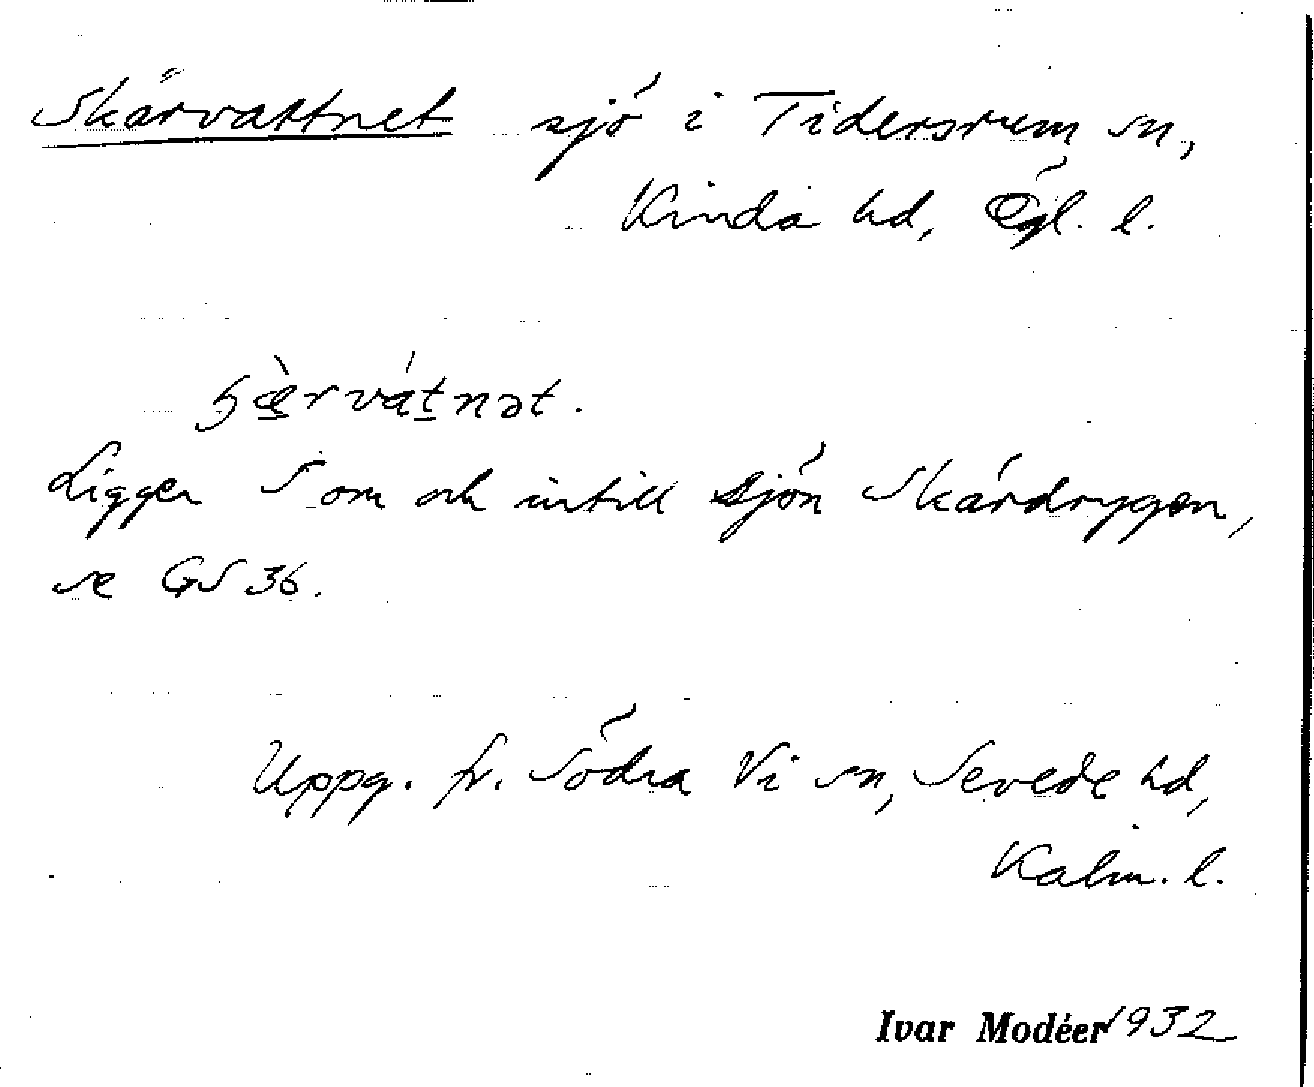 Skärvattnet sjö i Tidersrum sn,
Kinda hd, Ögl. l.
ʂæ̀rvátnət.
Ligger S om och intill sjön Skärdrygen,
se GS 36.
Uppg. fr. Södra Vi sn, Sevede hd,
Kalm. l.
Ivar Modéer 1932